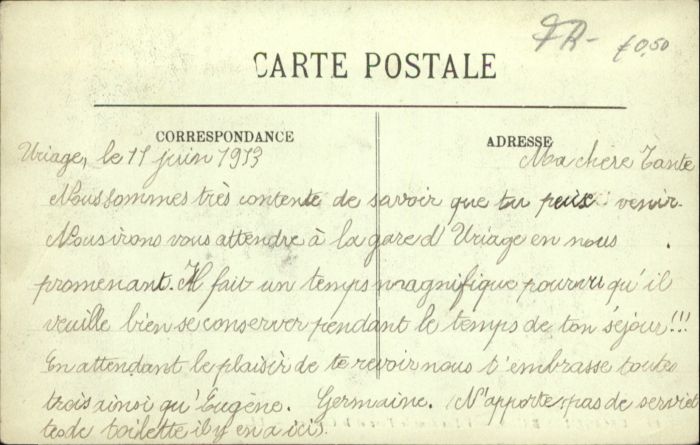 FR- £0.50
CARTE POSTALE
CORRESPONDANCE
ADRESSE
Uriage, le 11 juin 1913 Ma chère Tante
Nous sommes très contente de savoir que tu peux venir.
Nous irons vous attendre à la gare d'Uriage en nous
promenant. Il fait un temps magnifique pourvu qu'il
veuille bien se conserver pendant le temps de ton séjour!!!
En attendant le plaisir de te revoir nous t'embrasse toutes
trois ainsi qu'Eugène. Germaine. N'apporte pas de serviet
tes de toilette il y en a ici.